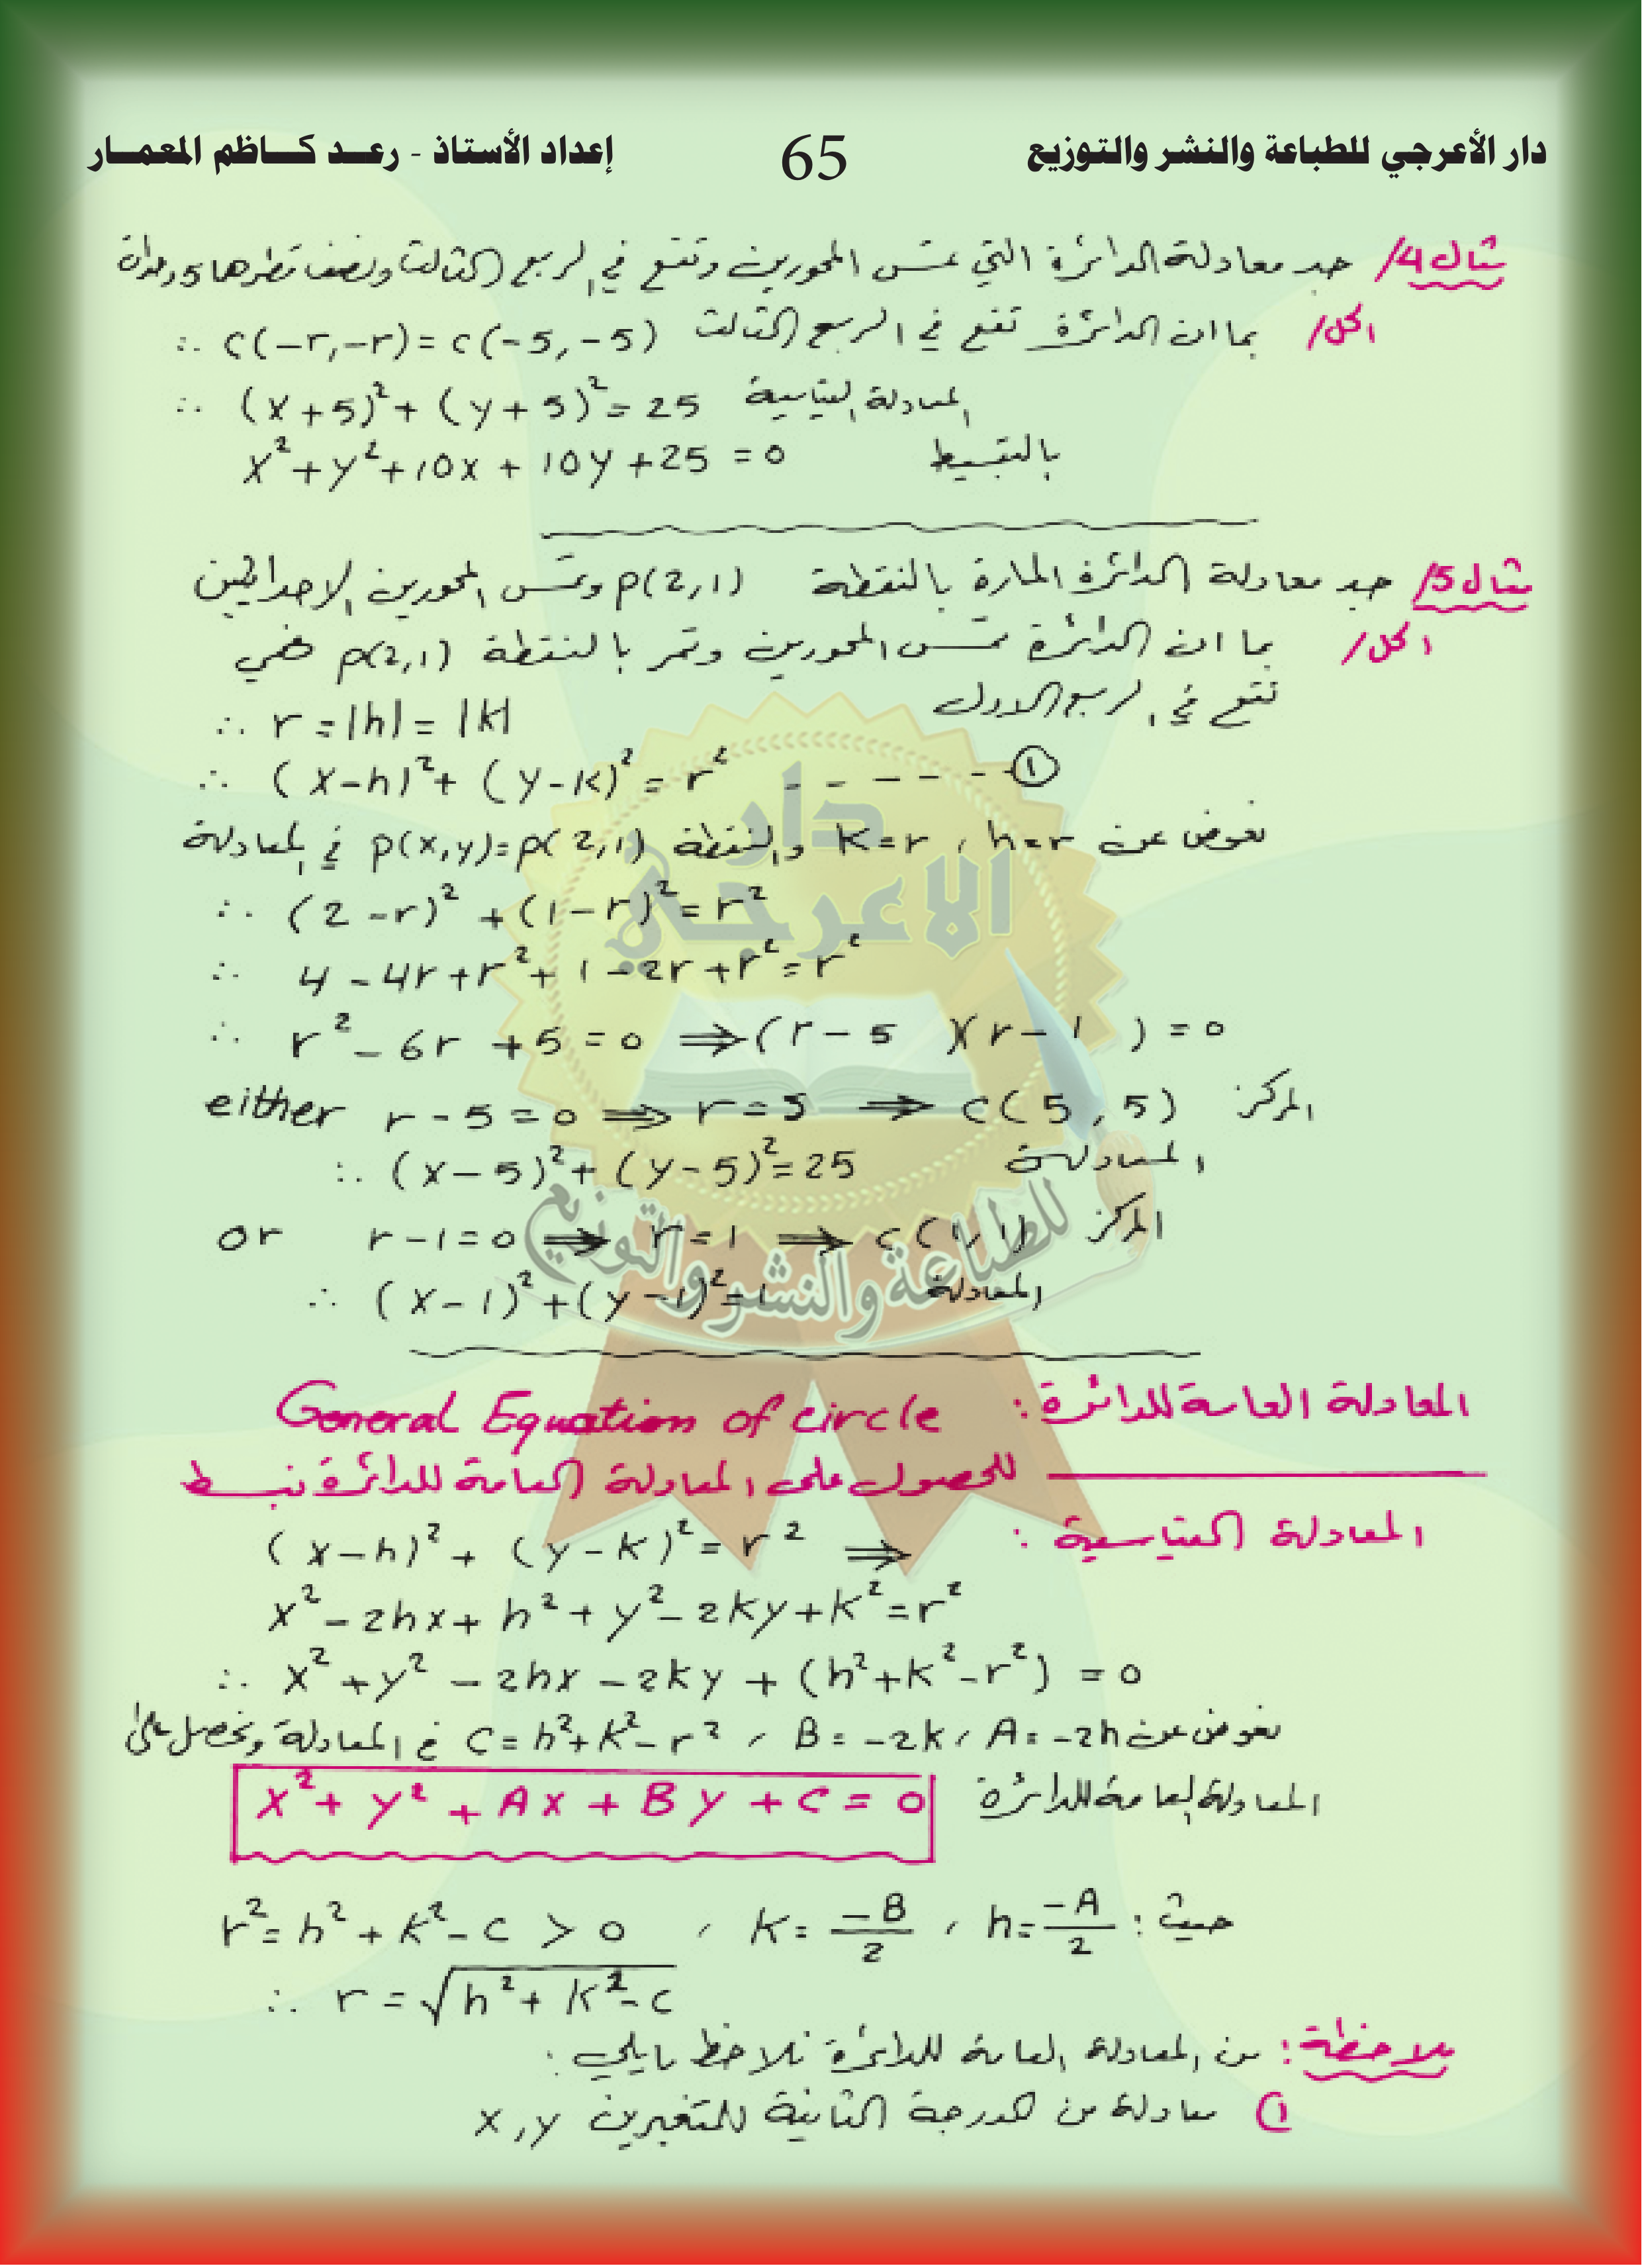 دار الأعرجي للطباعة والنشر والتوزيع 65 إعداد الأستاذ - رعد كاظم المعمار
مثال 4/ جد معادلة الدائرة التي تمس المحورين وتقع في الربع الثالث ونصف قطرها 5 وحدات
الحل/ بما ان الدائرة تقع في الربع الثالث ∴ C(-r,-r)=C(-5,-5)
∴ (x+5)²+(y+5)²=25 المعادلة القياسية
x²+y²+10x+10y+25=0 بالتبسيط
مثال 5/ جد معادلة الدائرة المارة بالنقطة P(2,1) وتمس المحورين الاحداثيين
الحل/ بما ان الدائرة تمس المحورين وتمر بالنقطة P(2,1) فهي
تقع في الربع الاول
∴ r=|h|=|k|
∴ (x-h)²+(y-k)²=r² ------①
نعوض عن h=r ، k=r والنقطة P(x,y)=P(2,1) في المعادلة
∴ (2-r)²+(1-r)²=r²
∴ 4-4r+r²+1-2r+r²=r²
∴ r²-6r+5=0 ⇒(r-5 )(r-1 )=0
either r-5=0 ⇒ r=5 ⇒ C(5,5) المركز
∴ (x-5)²+(y-5)²=25 المعادلة
or r-1=0 ⇒ r=1 ⇒ C(1,1) المركز
∴ (x-1)²+(y-1)²=1 المعادلة
المعادلة العامة للدائرة: General Equation of circle
للحصول على المعادلة العامة للدائرة نبسط
المعادلة القياسية :
(x-h)²+(y-k)²=r² ⇒
x²-2hx+h²+y²-2ky+k²=r²
∴ x²+y²-2hx-2ky+(h²+k²-r²)=0
نعوض عن A=-2h ، B=-2k ، C=h²+k²-r² في المعادلة ونحصل على
المعادلة العامة للدائرة x²+y²+Ax+By+C=0
حيث : h=-A/2 ، k=-B/2 ، r²=h²+k²-c>0
∴ r=√(h²+k²-c)
ملاحظة : من المعادلة العامة للدائرة نلاحظ مايلي :
1) معادلة من الدرجة الثانية للمتغيرين x,y
دار
الاعرجي
للطباعة والنشر والتوزيع